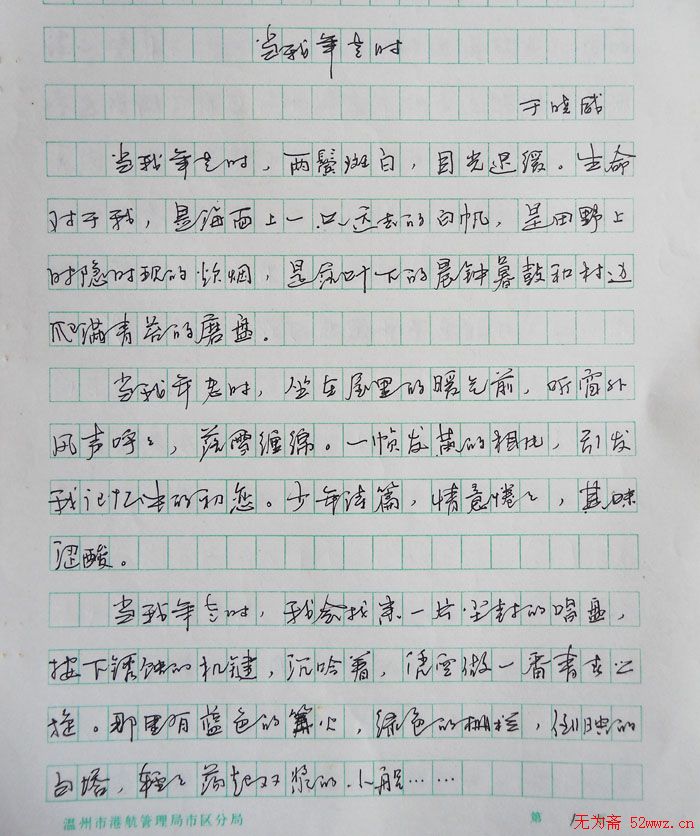 当我年老时
于晓威
当我年老时，两鬓斑白，目光迟缓。生命
对于我，是海面上一只远去的白帆，是田野上
时隐时现的炊烟，是尿叶下的晨钟暮鼓和村边
爬满青苔的磨盘。
当我年老时，坐在屋里的暖气前，听窗外
风声呼々，落雪缠绵。一帧发黄的相片，引发
我记忆中的初恋。少年诗篇，情意惓々，其味
涩酸。
当我年老时，我会找来一片尘封的唱盘，
按下锈蚀的机键，沉吟着，凭空做一番青春公
旋。那里有蓝色的篝火，绿色的栅栏，倒映的
白塔，轻々荡起双桨的小船……
温州市港航管理局市区分局 第
无为斋 52wwz.cn